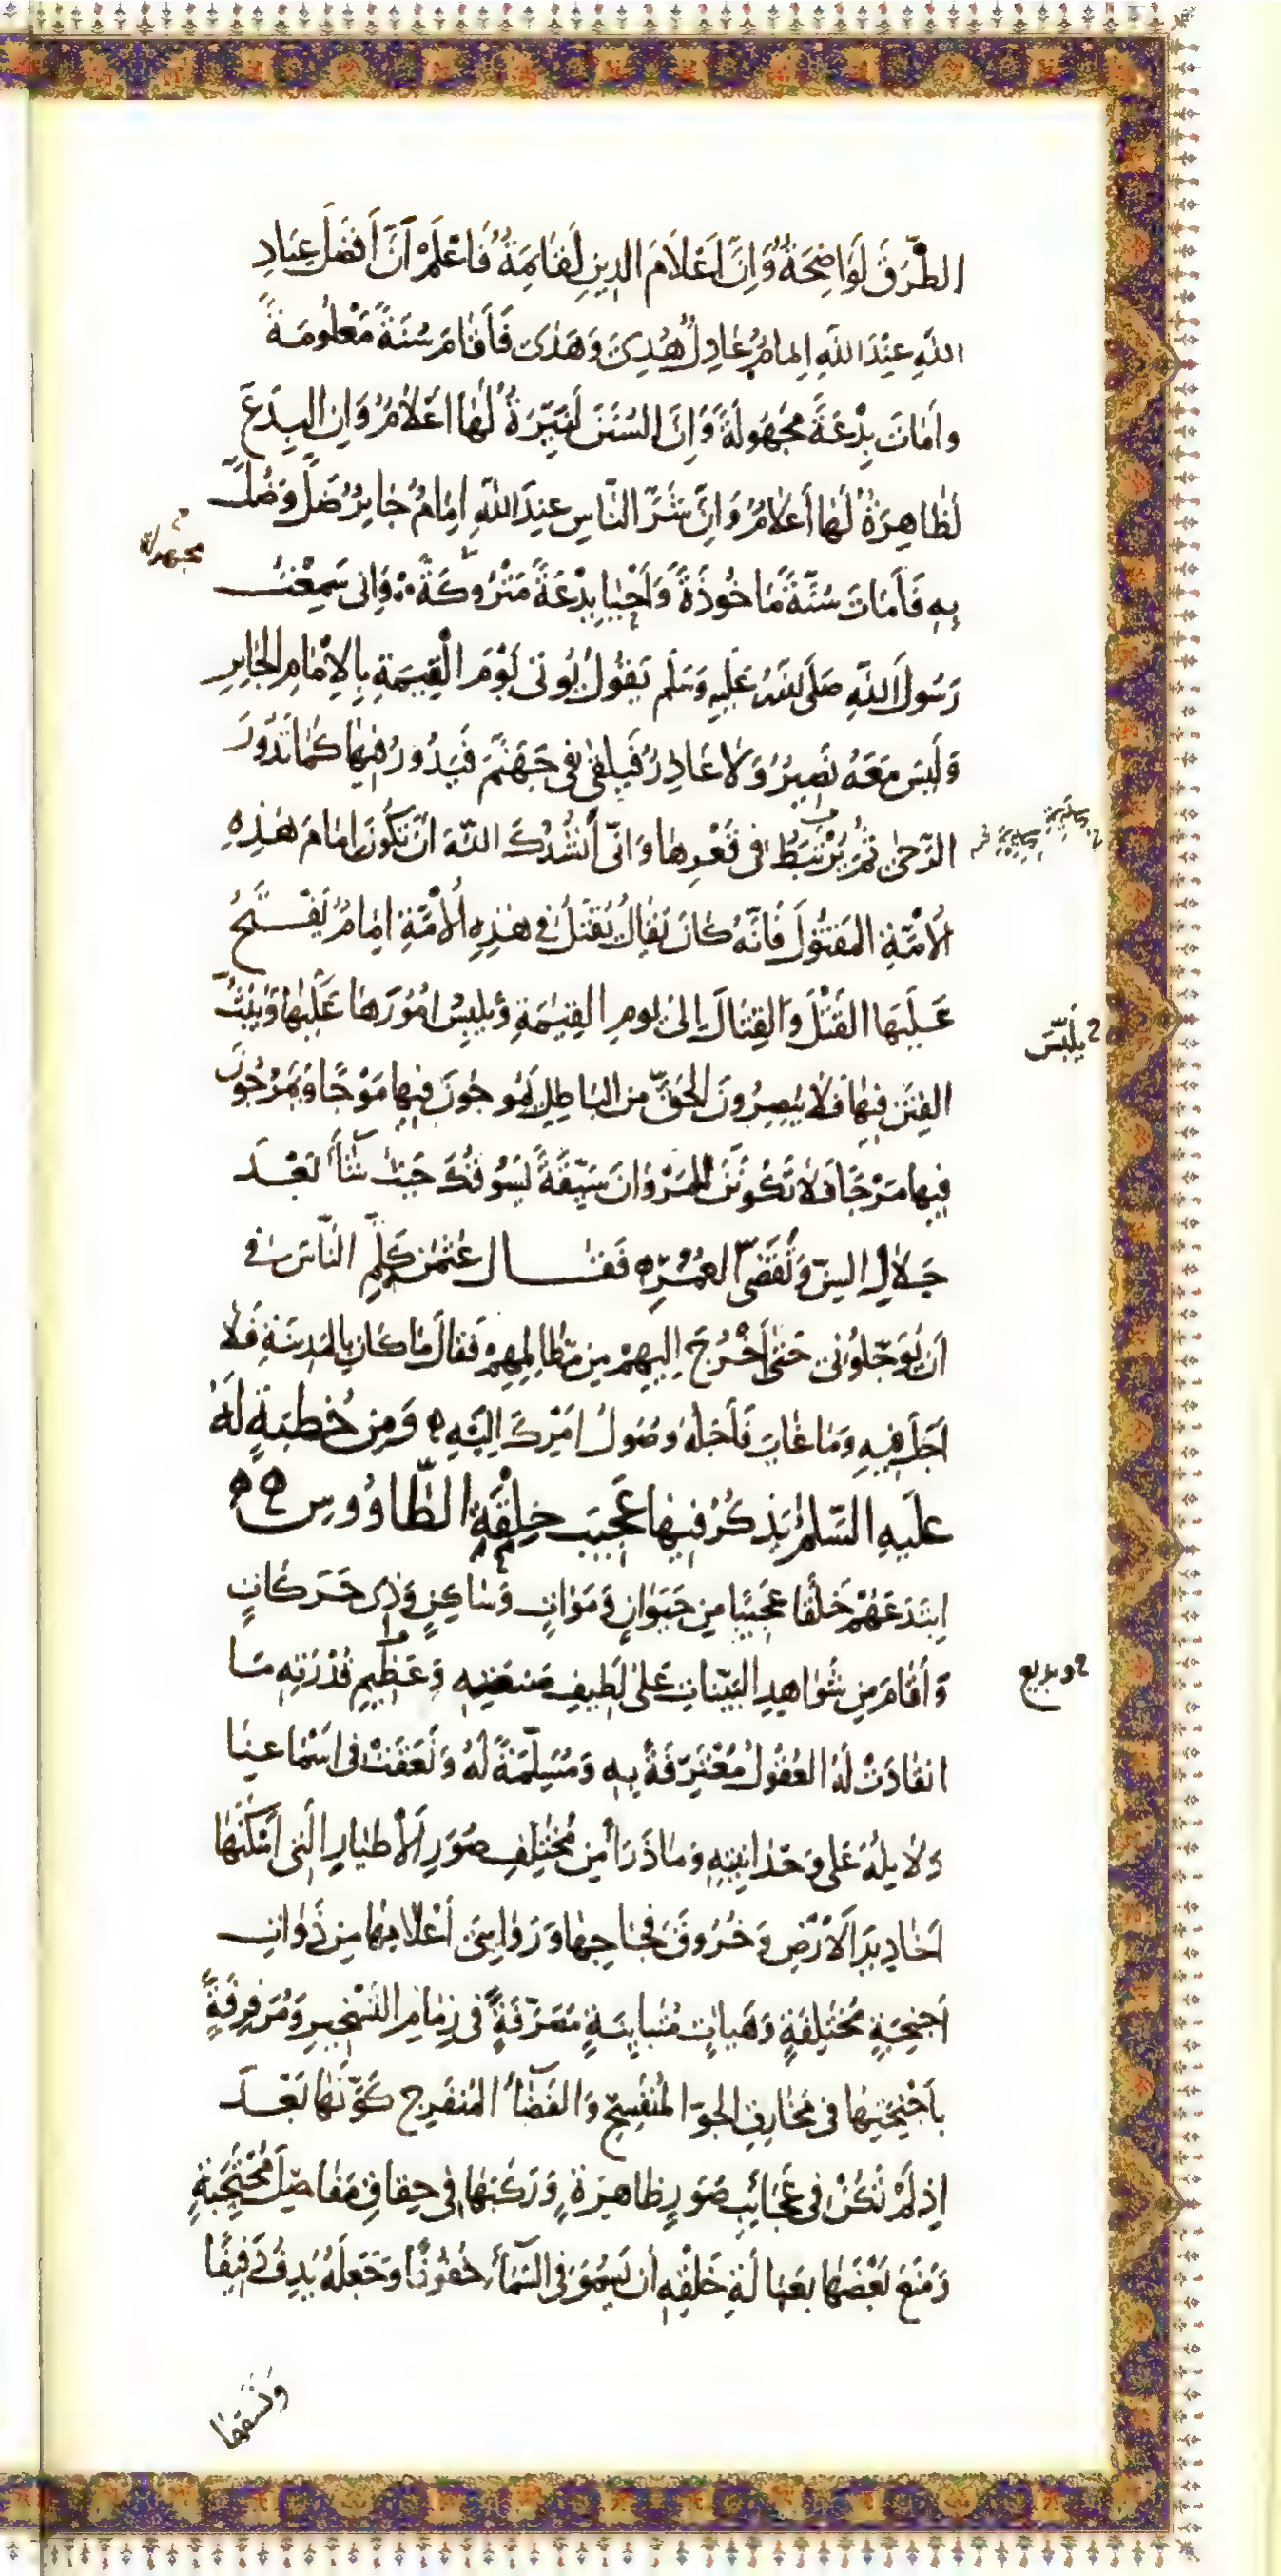 الطُّرُقَ لَوَاضِحَةٌ وَاِنَّ اَعْلَامَ الدِينِ لَقَائِمَةٌ فَاعْلَمْ اَنَّ اَفْضَلَ عِبَادِ
اللهِ عِنْدَ اللهِ اِمامٌ عَادِلٌ هُدِىَ وَهَدٰى فَاَقَامَ سُنَةً مَعْلُومَةً
وامَاتَ بِدْعَةً مَجْهُولَةً وَاِنَّ السُنَنَ لَنَيِّرَةٌ لَهَا اَعْلَامٌ وَاِن البِدَعَ
لَظَاهِرَةٌ لَهَا اَعْلَامٌ وَاِنَّ شَرَّ النَّاسِ عِنِدَ اللهِ اِمَامٌ جَايِرٌ ضَلَّ وَضُلَّ
بِهِ فَاَمَاتَ سُنَّةً مَاخُوذَةً وَاَحْيَا بِدْعَةً مَتْرُوكَةً وَانِى سَمِعْتُ
مجهولة
رَسُولَ اللهِ صَلَى اللهُ عَلَيهِ وَسَلَم يَقُولُ يُوتٰى يَوْمَ الْقِيٰمَةِ بِالاِمَامِ الجَايِرِ
وَلَيسَ مَعَهُ نَصِيرٌ وَلَا عَاذِرٌ فَيلقىٰ فى جَهَنَّمَ فَيَدُورُ فِيهَا كَمَا تَدُورُ
الرَّحىٰ ثُمَّ يُرْتَبَطُ فى قَعْرِهَا وَانّى اَنْشُدُكَ اللهَ اَنْ تَكُونَ اِمَامَ هٰذِهِ
الاُمَّةِ المَقْتُولَ فَاِنَّهُ كَانَ يُقَالُ يُقْتَلُ فى هٰذِهِ الاُمَّةِ اِمَامٌ يَفْتَحُ
عَلَيهَا القَتْلَ وَالقِتَالَ اِلىٰ يَومِ القِيٰمَةِ وَيُلبِسُ اُمُورَهَا عَلَيهَا وَيَبُثُّ
يُلَبّسَ
الفِتَنَ فِيهَا فَلَا يُبصِرُونَ الحَقَّ مِنَ البَاطِلِ يَمُوجُونَ فِيهَا مَوْجًا وَيَمْرُجُونَ
فِيهَا مَرْجًا فَلَا تَكُونَنَّ لِلمَرْوَانَ سَيِّقَةً يَسُوقُكَ حَيْثُ شَآءَ بَعْدَ
جَلَالِ السِنّ وَتَقَضِّى العُمُرِ فَقَال عُثمٰنُ كَلِّمِ النَّاسَ فى
اَن يُوَجّلُونى حَتىٰ اَخْرُجَ اِلَيهِمْ مِن مَظَالِمِهِمْ فَقَالَ مَا كَانَ بِالمَدِينَةِ فَلَا
اَجَلَ فِيهِ وَمَا غَابَ فَاَجَلُهُ وصُولُ اَمْرِكَ اِلَيهِ وَمِن خُطبَةٍ لَهُ
عَلَيهِ السَّلَمُ يَذكُرُ فِيهَا عَجِيبَ خِلقَةِ الطَّاوُوسِ
اِبتَدَعَهُمْ خَلقًا عَجِيبًا مِن حَيَوَانٍ وَمَوَاتٍ وَسَاكِنٍ وَذِى حَرَكَاتٍ
وَاَقَامَ مِن شَوَاهِدِ البَيّنَاتِ عَلىٰ لَطِيفِ صَنعَتِهِ وَعَظِيمِ قُدْرَتِهِ مَا
وبديع
انقَادَتْ لَهُ العُقُولُ مُعْتَرِفَةً بِهِ وَمُسَلِّمَةً لَهُ وَنَعَقَتْ فى اَسْمَاعِنَا
دَلَايلُهُ عَلىٰ وَحْدَانِيتِهِ وَمَا ذَرَأَ مِن مُختَلِفِ صُوَرِ الاَطيَارِ الَتى اَسْكَنَهَا
اَخَادِيدَ الاَرْضِ وَخُرُوقَ فِجَاجِهَا وَرَوَاسِىَ اَعْلَامِهَا مِن ذَوَاتِ
اَجنِحَةٍ مُختَلِفَةٍ وَهَيآتٍ مُتَبَايِنَةٍ مُصَرَّفَةٍ فى زِمَامِ التَسْخِيرِ وَمُرَفرِفَةٍ
بِاَجْنِحَتِهَا فى مَخَارِقِ الجَوِّ المُنفَسِحِ وَالفَضَآءِ المُنفَرِجِ كَوَّنَهَا بَعْدَ
اِذ لَمْ تَكُنْ فى عَجَائِبِ صُوَرٍ ظَاهِرَةٍ وَرَكَّبَهَا فى حِقَاقِ مَفَاصِلَ مُحْتَجِبَةٍ
وَمَنَعَ بَعْضَهَا بِعَبَالَةِ خَلْقِهِ اَن يَسمُوَ فى السَمآءِ خُفُوفًا وَجَعَلَهُ يَدِفُ دَفِيفًا
وَنَسَقَهَا